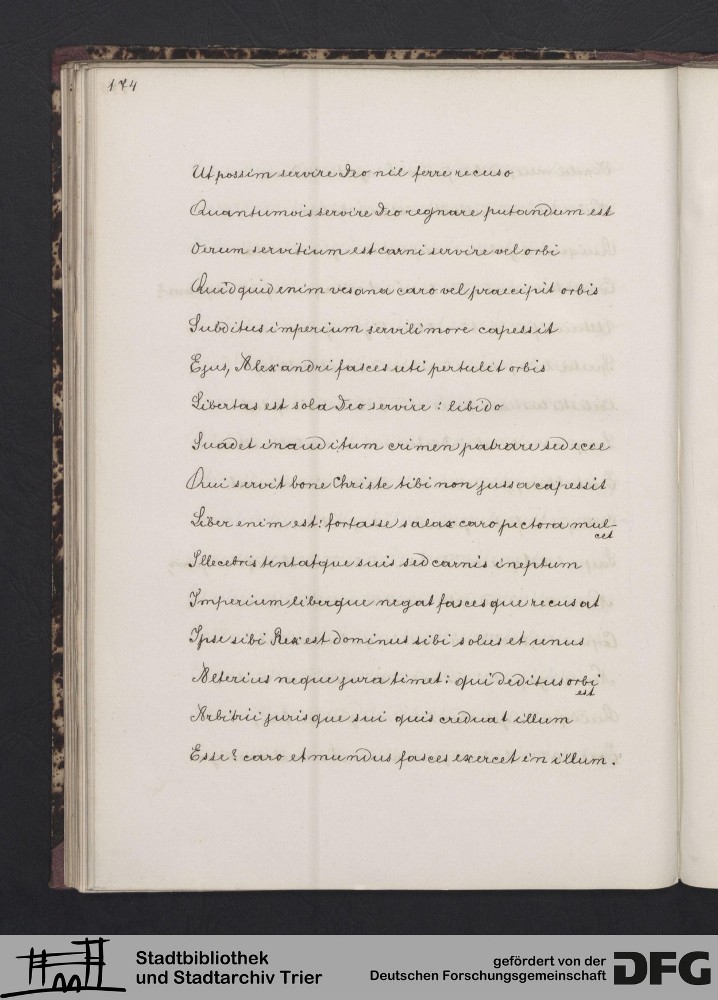 174
Ut possim servire Deo nil ferre recuso
Quantumvis servire Deo regnare putandum est
Verum servitium est carni servire vel orbi
Quidquid enim vesana caro vel praecipit orbis
Subditus imperium servili more capessit
Ejus, Alexandri fasces uti pertulit orbis
Libertas est sola Deo servire: libido
Suadet inauditum crimen patrare sed ecce
Qui servit bone Christe tibi non jussa capessit
Liber enim est: fortasse salax caro pectora mul-
cet
Illecebris tentatque suis sed carnis ineptum
Imperium liberque negat fascesque recusat
Ipse sibi Rex est dominus sibi solus et unus
Alterius neque jura timet: qui deditus orbi
est
Arbitrii jurisque sui quis creduat illum
Esse? caro et mundus fasces exercet in illum.
Stadtbibliothek
und Stadtarchiv Trier
gefördert von der
Deutschen Forschungsgemeinschaft
DFG